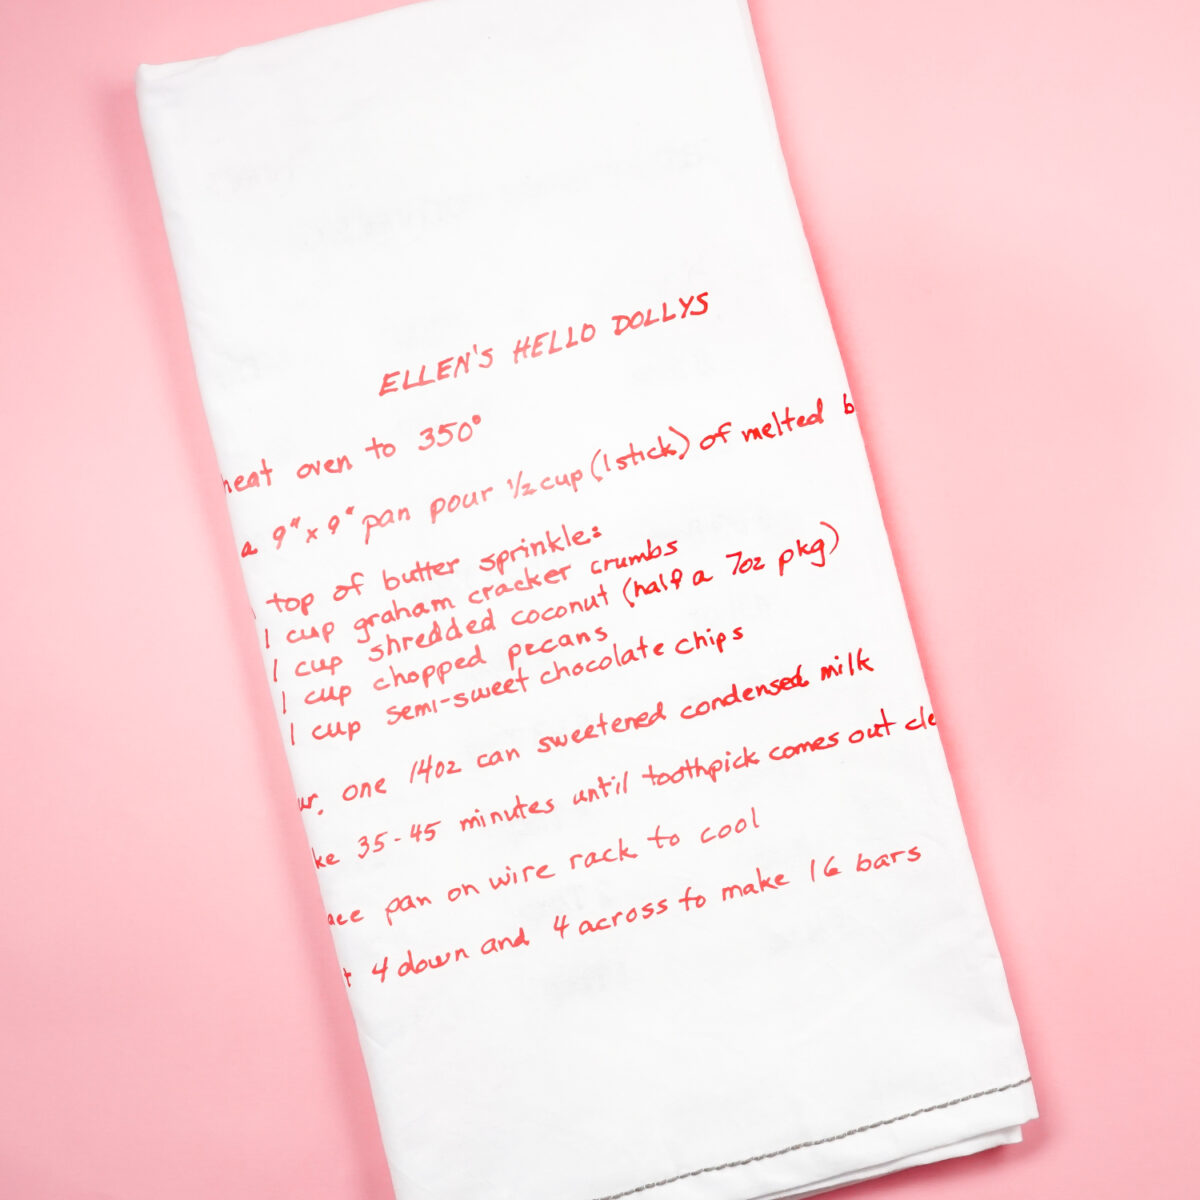 ELLEN'S HELLO DOLLYS
heat oven to 350°
a 9" x 9" pan pour 1/2 cup (1 stick) of melted b
top of butter sprinkle:
1 cup graham cracker crumbs
1 cup shredded coconut (half a 7oz pkg)
1 cup chopped pecans
1 cup semi-sweet chocolate chips
ur, one 14oz can sweetened condensed milk
ke 35-45 minutes until toothpick comes out cle
ace pan on wire rack to cool
t 4 down and 4 across to make 16 bars